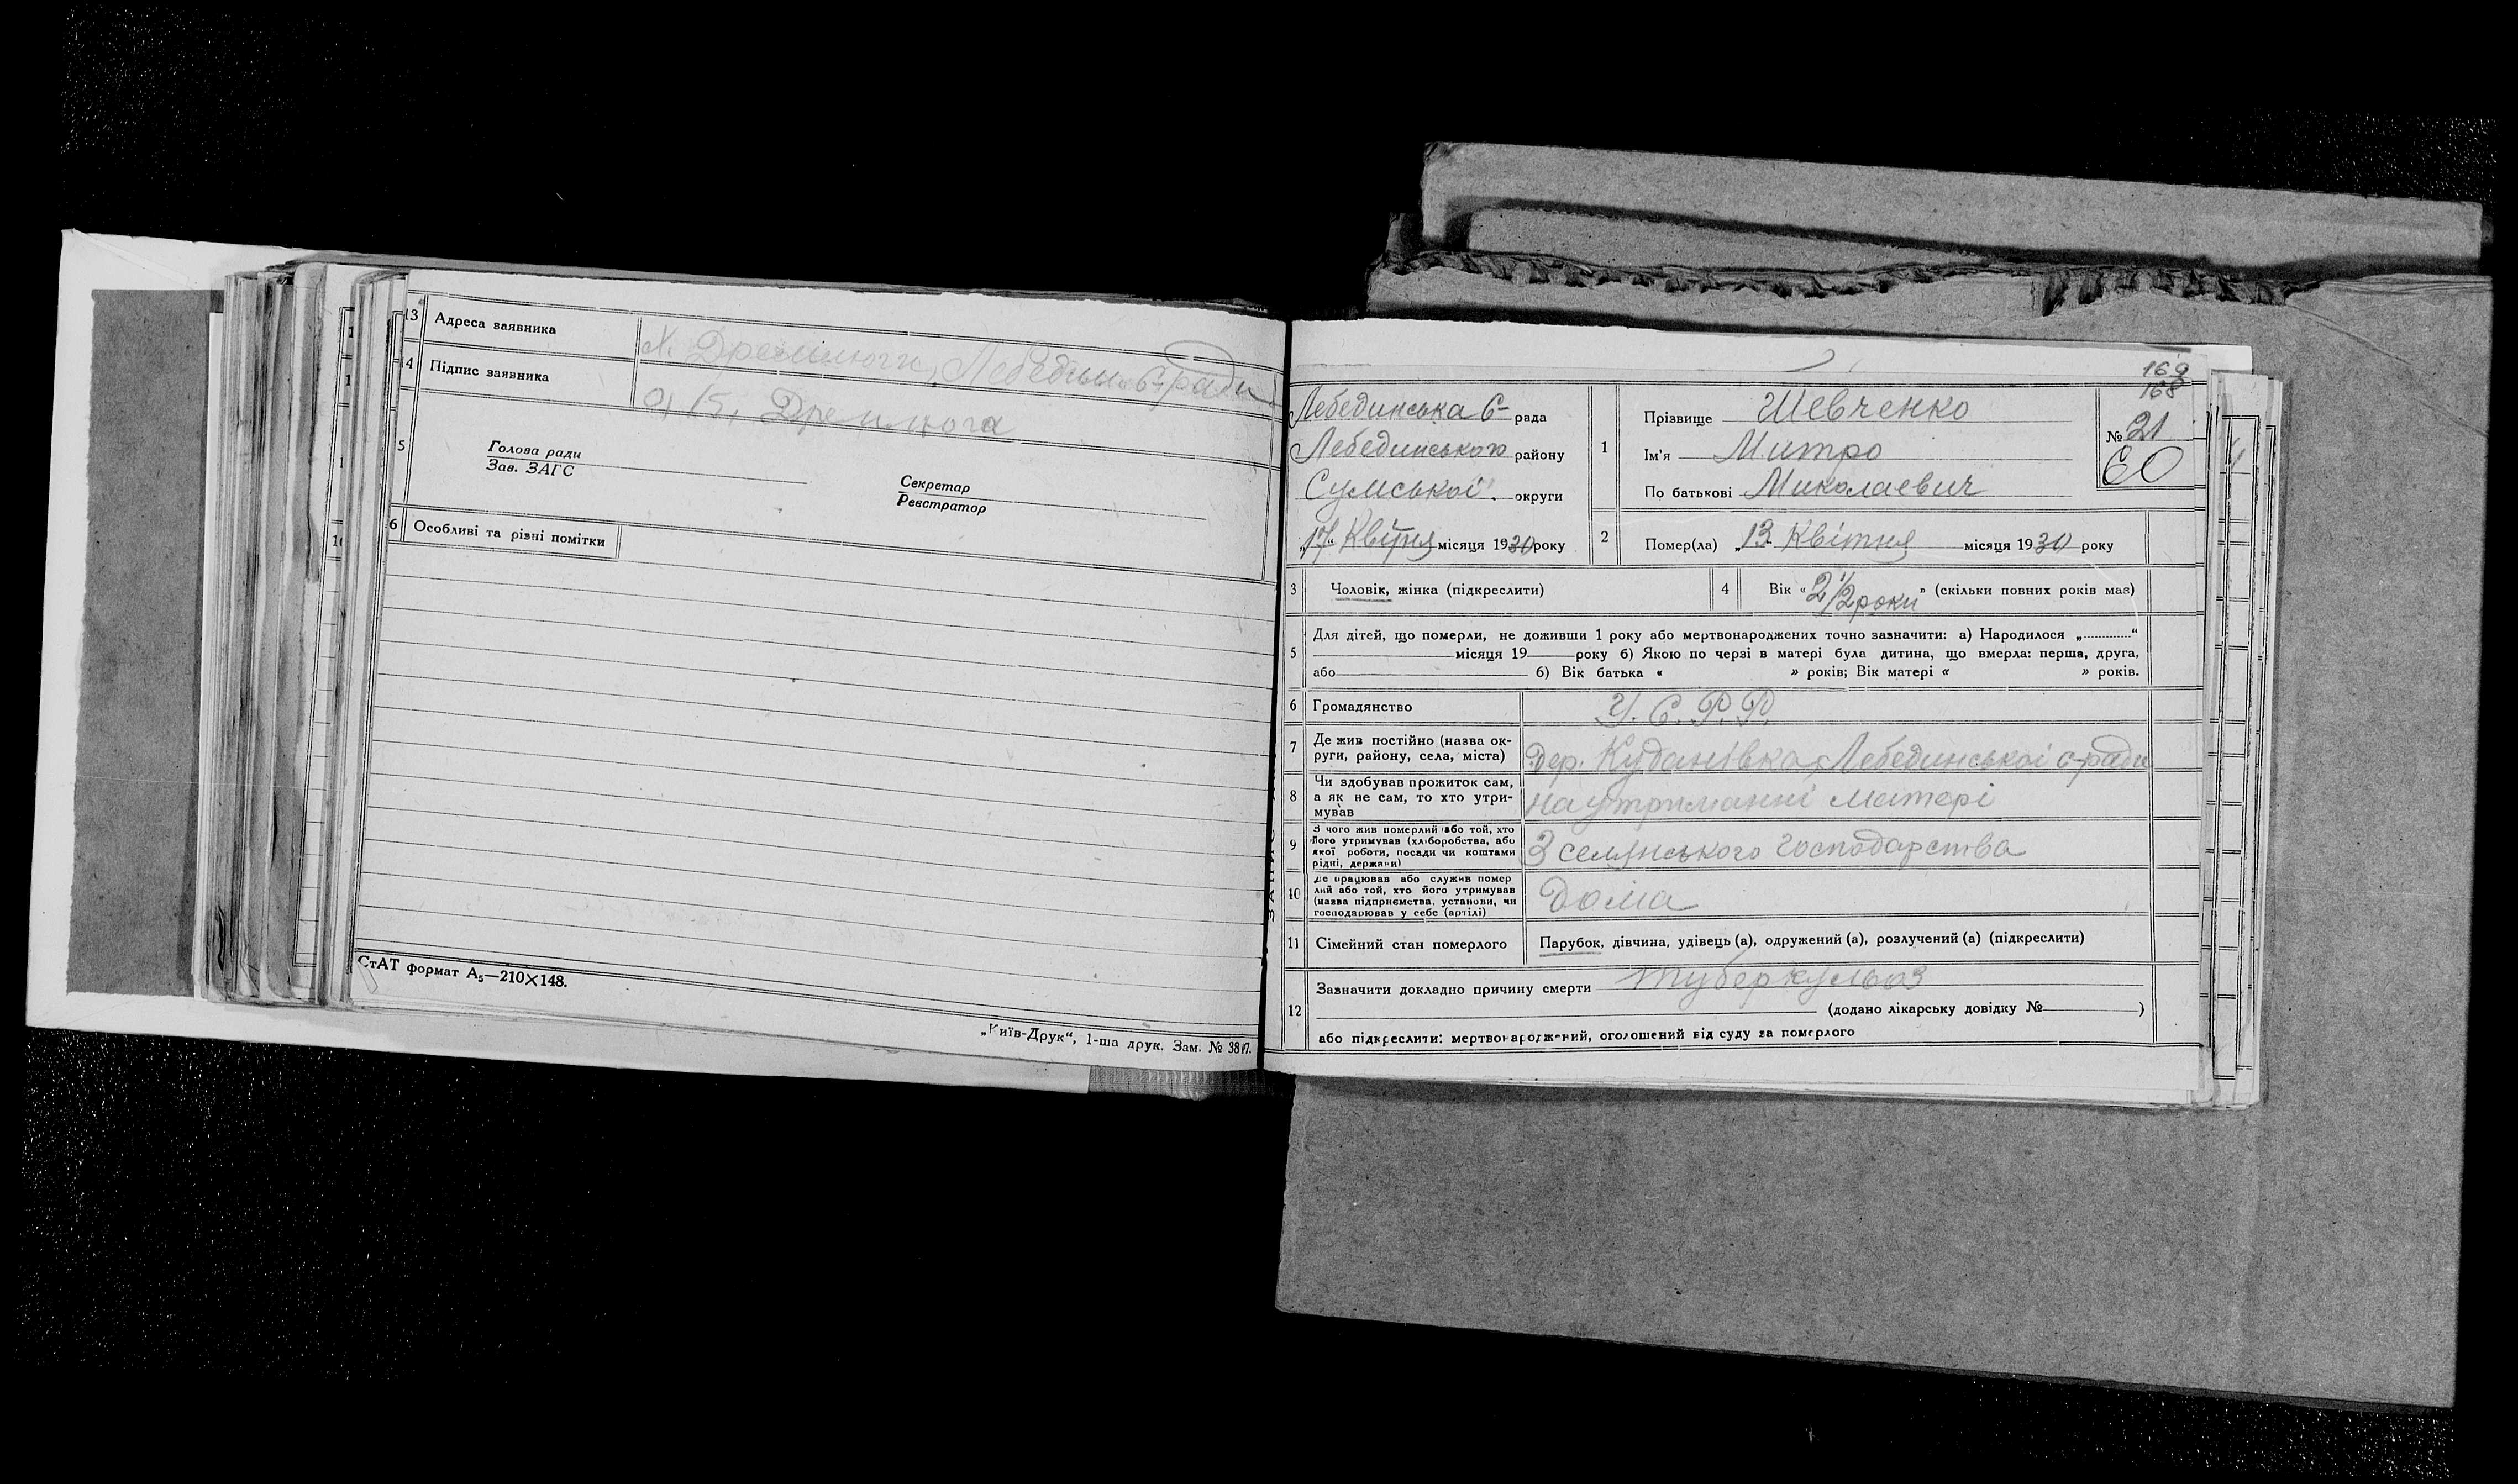 13 Адреса заявника х. Дремлюги, Лебедин. С-ради
14 Підпис заявника Дремлюга
5
Голова ради
Зав. ЗАГС
Секретар
Реєстратор
6 Особливі та різні помітки
СтАТ формат А₅—210×148.
„Київ-Друк“, 1-ша друк. Зам. № 3817.
169
168
Лебединська С- рада
Лебединського району
Сумської округи
„17“ Квітня місяця 1930 року
1 Прізвище Шевченко
Ім'я Митро
По батькові Миколаевич
№ 21
60
2 Помер(ла) „13 Квітня місяця 1930 року
3 Чоловік, жінка (підкреслити)
4 Вік «2 1/2 роки» (скільки повних років мав)
5 Для дітей, що померли, не доживши 1 року або мертвонароджених точно зазначити: а) Народилося „ “
місяця 19 року б) Якою по черзі в матері була дитина, що вмерла: перша, друга,
або б) Вік батька « » років; Вік матері « » років.
6 Громадянство У. С. Р. Р.
7 Де жив постійно (назва ок-
руги, району, села, міста) Дер. Куданівка, Лебединської с-ради
8 Чи здобував прожиток сам,
а як не сам, то хто утри-
мував на утриманні матері
9 З чого жив померлий або той, хто
його утримував (хліборобства, або
якої роботи, посади чи коштами
рідні, держави) З селянського господарства
10 Де працював або служив помер
лий або той, хто його утримував
(назва підприємства, установи, чи
господарював у себе (артілі) Дома
11 Сімейний стан померлого Парубок, дівчина, удівець (а), одружений (а), розлучений (а) (підкреслити)
12 Зазначити докладно причину смерти туберкульоз
(додано лікарську довідку № )
або підкреслити: мертвонароджений, оголошений від суду за померлого